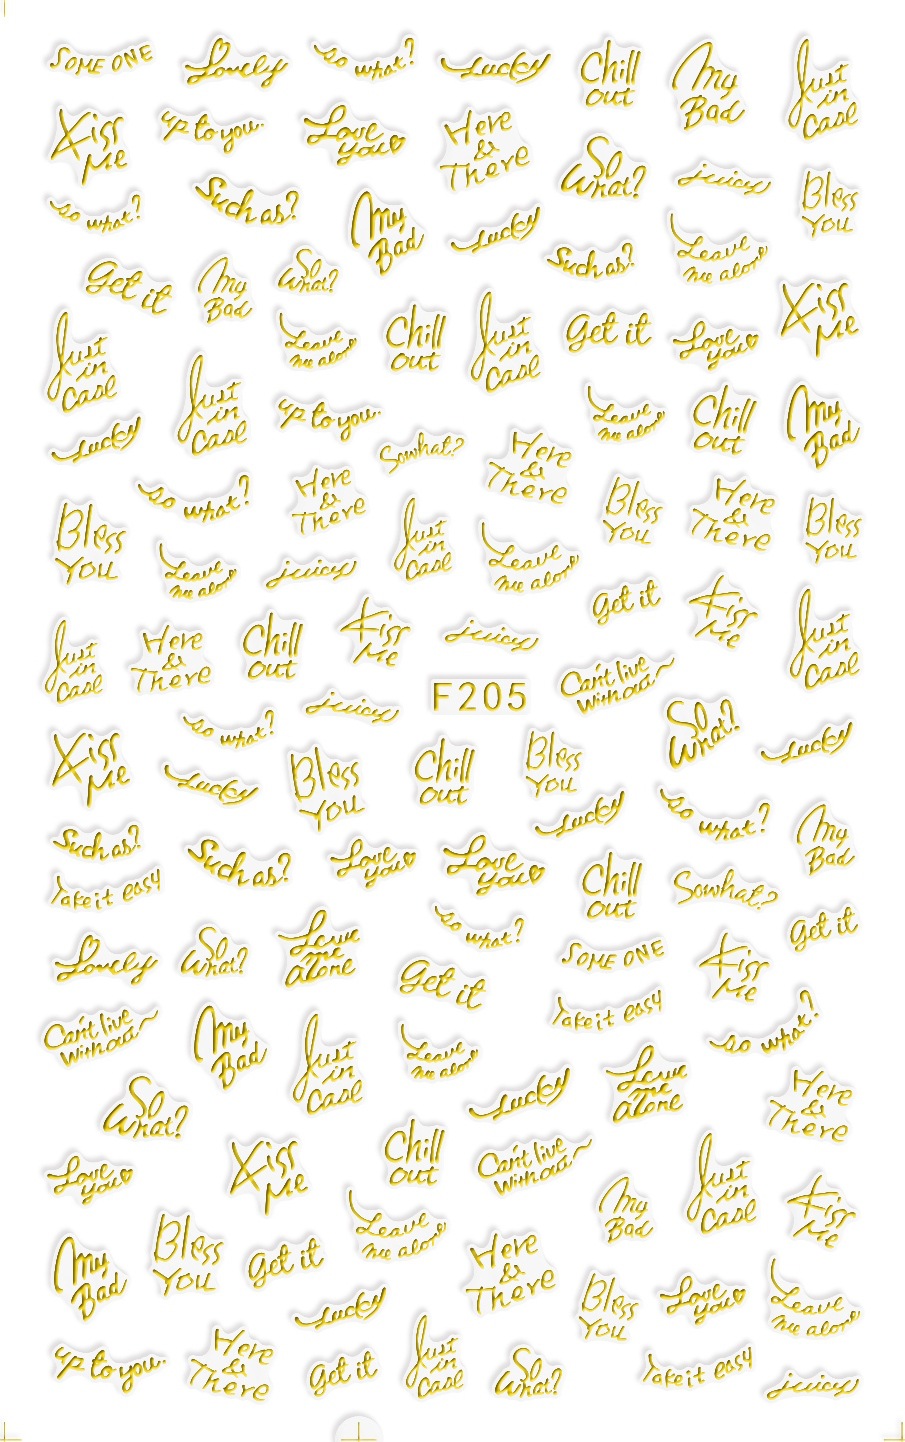 SOME ONE
Lovely
so what?
Lucky
Chill
out
My
Bad
Just
in
Case
Kiss
Me
up to you..
Love
you
Here
&
There
So
What?
juicy
Bless
You
so what?
Such as?
My
Bad
Lucky
Such as?
Leave
me alone
Get it
My
Bad
So
What?
Kiss
Me
Just
in
Case
Leave
me alone
Chill
out
Just
in
Case
Get it
Love
you
Just
in
Case
up to you..
Leave
me alone
Chill
out
My
Bad
Lucky
Sowhat?
Here
&
There
so what?
Here
&
There
Bless
You
Here
&
There
Bless
You
Bless
You
Leave
me alone
juicy
Just
in
Case
Leave
me alone
Get it
Kiss
Me
Just
in
Case
Just
in
Case
Here
&
There
Chill
out
Kiss
Me
juicy
Can't live
Without
F205
juicy
so what?
So
What?
Lucky
Kiss
Me
Lucky
Bless
You
Chill
out
Bless
You
Lucky
so what?
My
Bad
Such as?
Such as?
Love
you
Love
you
Chill
out
Sowhat?
Take it easy
so what?
Get it
Lovely
So
What?
Leave
me
alone
Get it
SOME ONE
Kiss
Me
Can't live
Without
My
Bad
Just
in
Case
Leave
me alone
Take it easy
so what?
So
What?
Lucky
Leave
me
alone
Here
&
There
Love
you
Kiss
Me
Chill
out
Can't live
Without
Just
in
Case
My
Bad
Kiss
Me
My
Bad
Bless
You
Get it
Leave
me alone
Here
&
There
Bless
You
Love
you
Leave
me alone
Lucky
up to you..
Here
&
There
Get it
Just
in
Case
So
What?
Take it easy
juicy